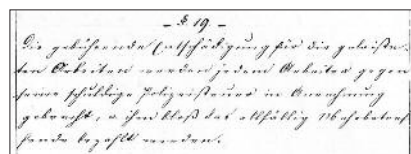 - § 19 -
Die gebührende Entschädigung für die geleiste-
ten Arbeiten werden jedem Arbeiter gegen
seine schuldige Polizeisteuer in Anrechnung
gebracht, u ihm bloß das allfällig Mehrbetref-
fende bezahlt werden.